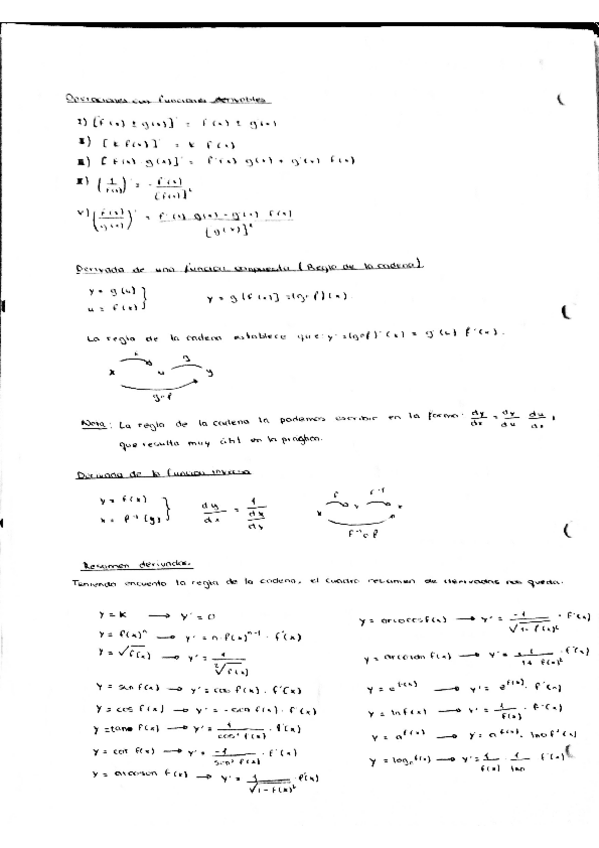 Operaciones con funciones derivables
I) [f(x) ± g(x)]' = f'(x) ± g'(x)
II) [k f(x)]' = k f'(x)
III) [f(x) g(x)]' = f'(x) g(x) + g'(x) f(x)
IV) (1/f(x))' = -f'(x)/[f(x)]²
V) (f(x)/g(x))' = f'(x) g(x) - g'(x) f(x)/[g(x)]²
Derivada de una función compuesta (Regla de la cadena).
y = g(u)
u = f(x)
y = g[f(x)] = (g∘f)(x)
La regla de la cadena establece que: y' = (g∘f)'(x) = g'(u) f'(x).
f g
x u y
g∘f
Nota: La regla de la cadena la podemos escribir en la forma: dy/dx = dy/du du/dx,
que resulta muy útil en la práctica.
Derivada de la función inversa
y = f(x)
x = f⁻¹(y)
dy/dx = 1/
f f⁻¹
x y x
f⁻¹∘f
Resumen derivadas.
Teniendo encuenta la regla de la cadena, el cuadro resumen de derivadas nos queda:
y = k → y' = 0
y = f(x)ⁿ → y' = n · f(x)ⁿ⁻¹ · f'(x)
y = √f(x) → y' =
y = sen f(x) → y' = cos f(x) · f'(x)
y = cos f(x) → y' = -sen f(x) · f'(x)
y = tang f(x) → y' = 1/cos² f(x) · f'(x)
y = cot f(x) → y' = -1/sen² f(x) · f'(x)
y = arcosen f(x) → y' = 1/√1-f(x)² · f'(x)
y = arcocos f(x) → y' = -1/√1-f(x)² · f'(x)
y = f(x) → y' = 1/1+f(x)² · f'(x)
y = e^f(x) → y' = e^f(x) · f'(x)
y = ln f(x) → y' = 1/f(x) · f'(x)
y = a^f(x) → y' = a^f(x) · lna f'(x)
y = logₐ f(x) → y' = 1/f(x) · 1/lna · f'(x)